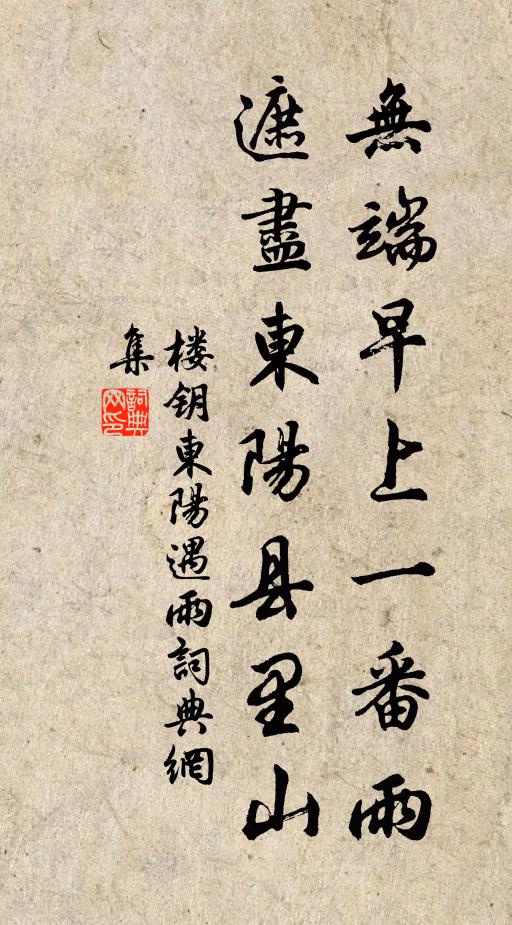 無端早上一番雨
遮盡東陽县里山
楼钥東陽遇雨詞典網
集
詞典
网印